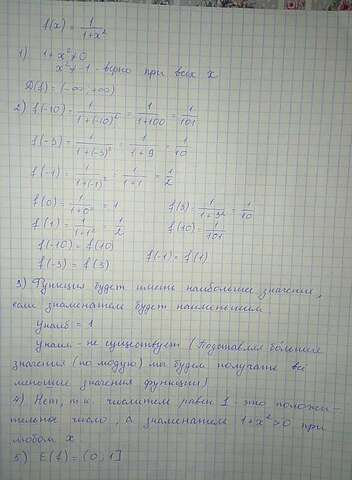 f(x) = 1/(1+x²)
1) 1+x² ≠ 0
x² ≠ -1 - верно при всех x
D(f) = (-∞, +∞)
2) f(-10) = 1/(1+(-10)²) = 1/(1+100) = 1/101
f(-3) = 1/(1+(-3)²) = 1/(1+9) = 1/10
f(-1) = 1/(1+(-1)²) = 1/(1+1) = 1/2
f(0) = 1/(1+0²) = 1 f(3) = 1/(1+3²) = 1/10
f(1) = 1/(1+1²) = 1/2 f(10) = 1/101
f(-10) = f(10)
f(-3) = f(3) f(-1) = f(1)
3) Функция будет иметь наибольшее значение,
если знаменатель будет наименьшим
y наиб = 1
y наим - не существует (Подставляя большие
значения (по модулю) мы будем получать все
меньшие значения функции)
4) Нет, т.к. числитель равен 1 - это положи
тельное число, а знаменатель 1+x² > 0 при
любом x
5) E(f) = (0, 1]